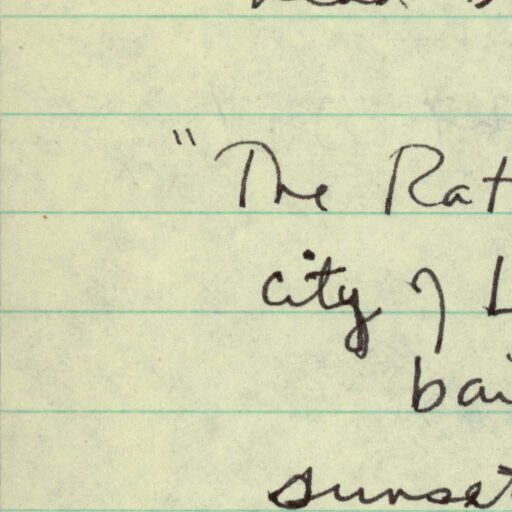 "The Rat
city of L
bai
sunset